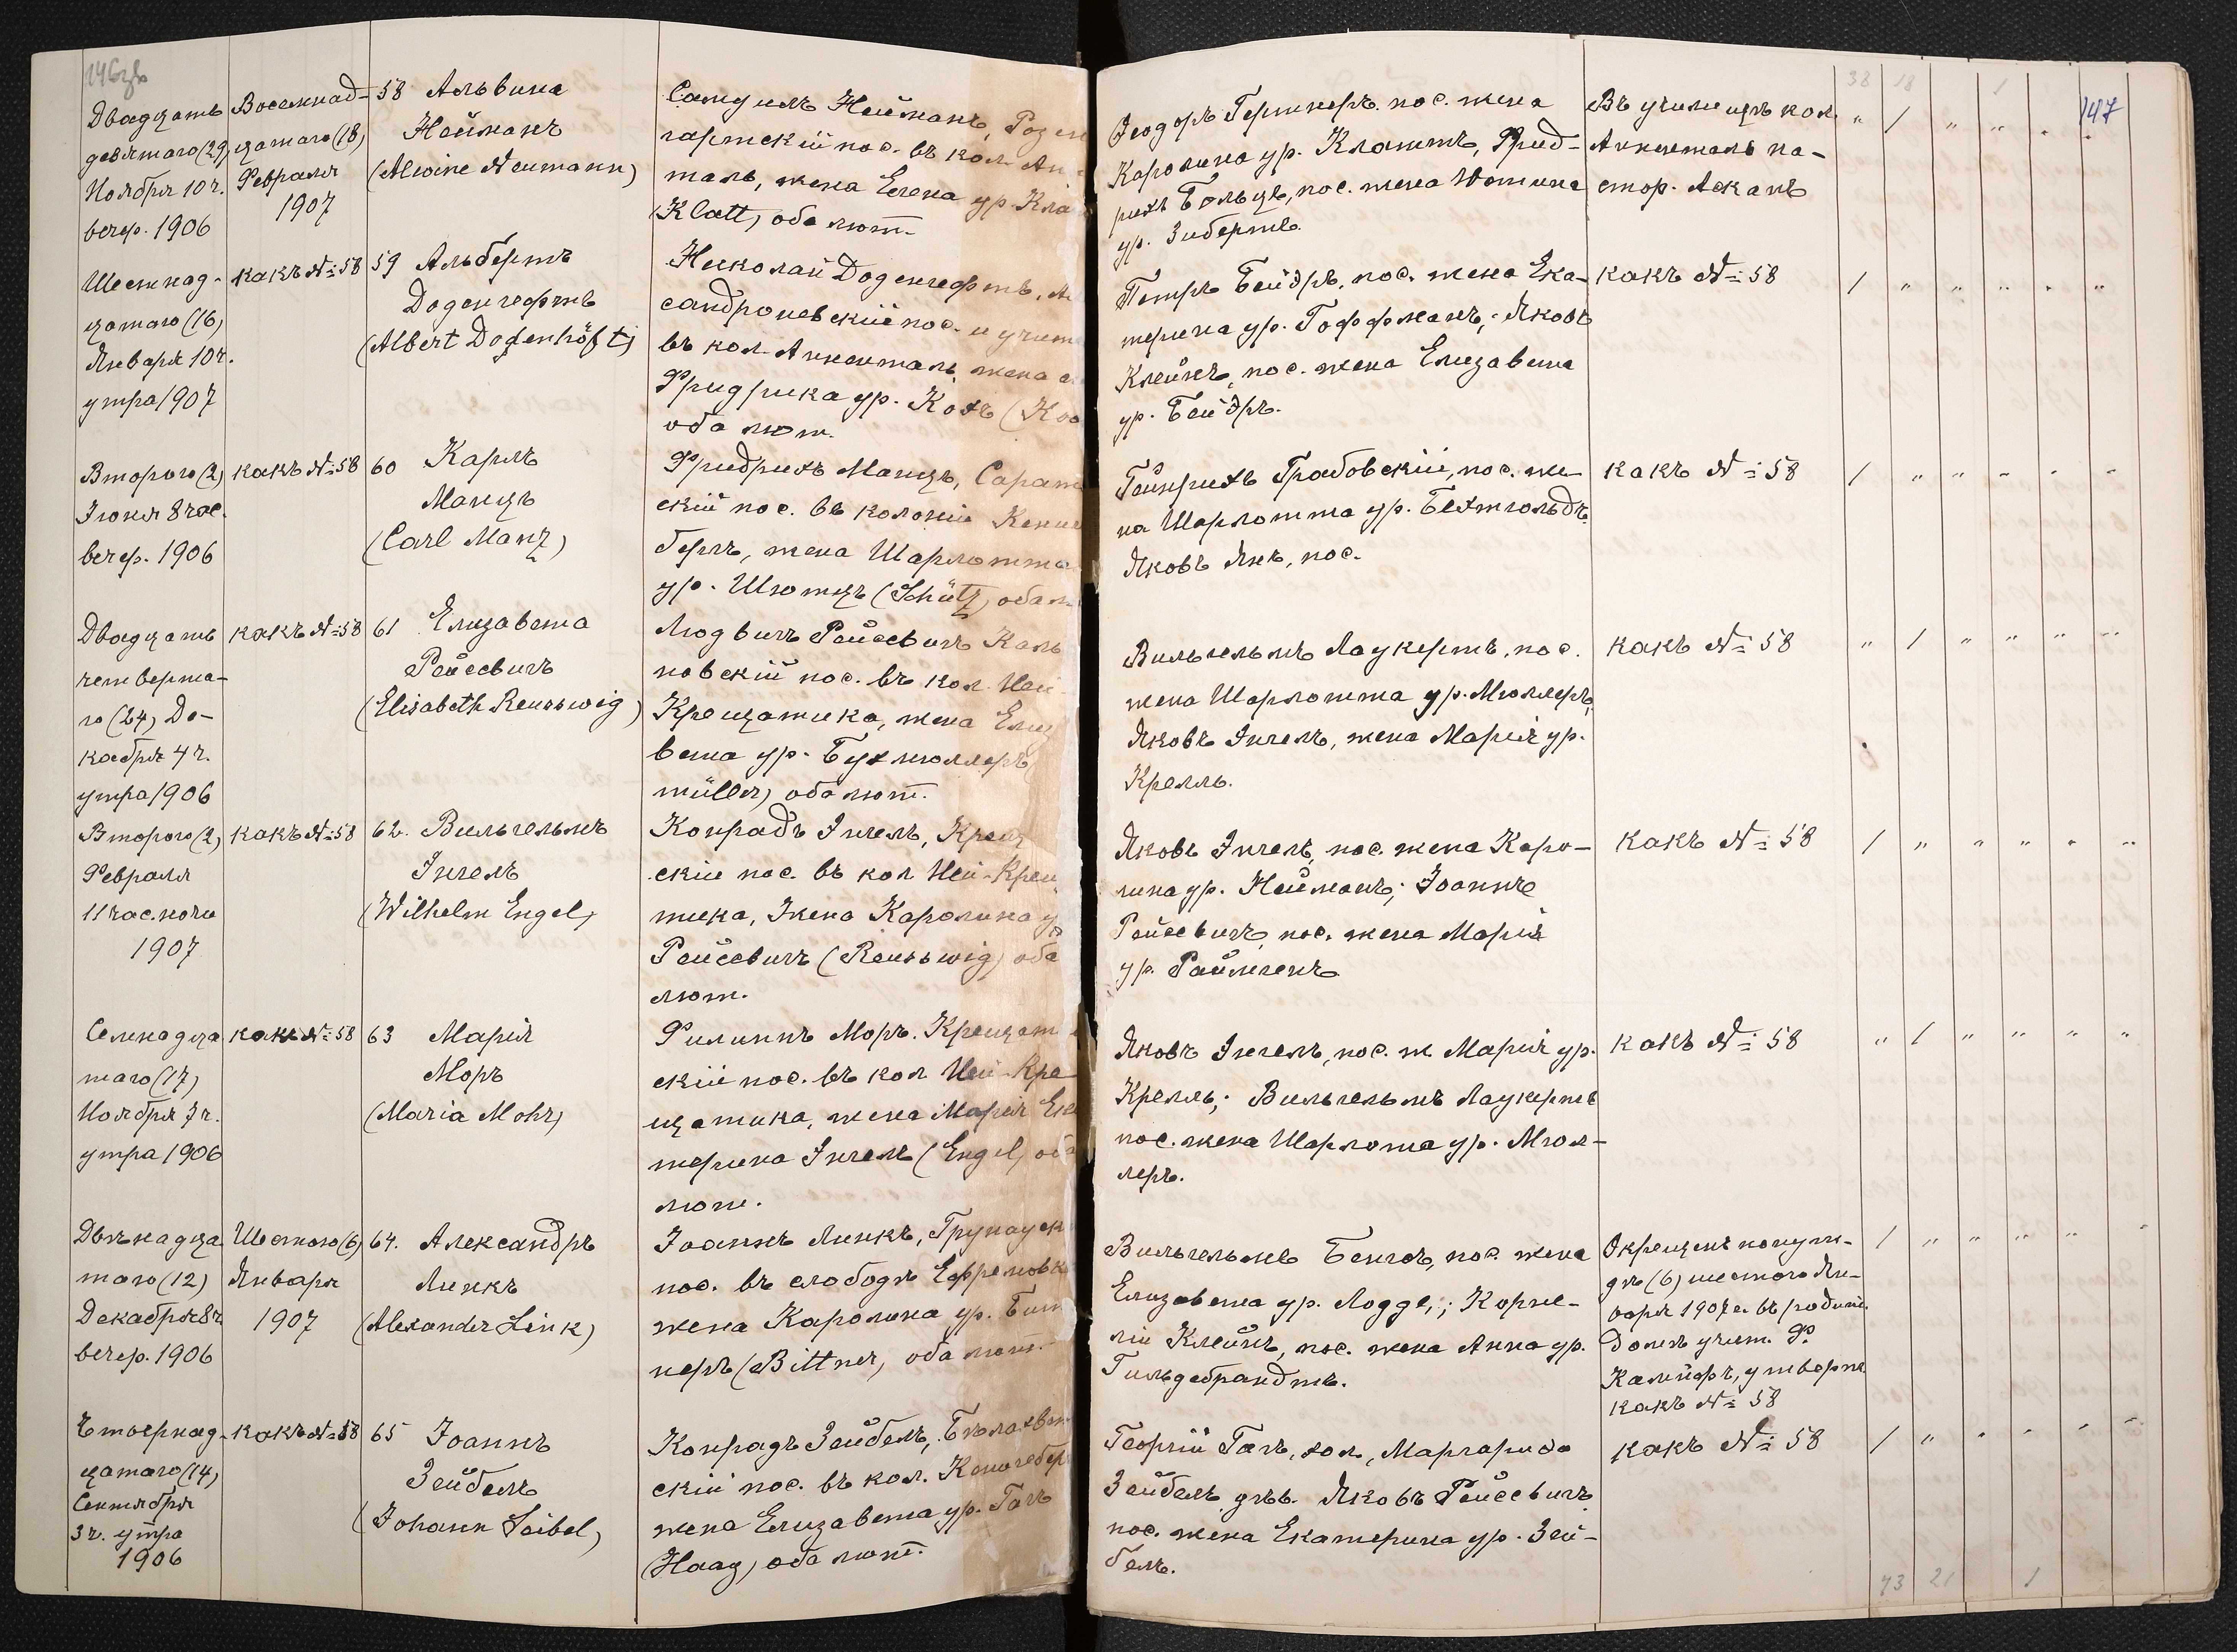 146об
Двадцать
девятаго (29)
Ноября 10 ч.
вечер. 1906
Восемнад-
цатаго (18)
Февраля
1907
58 Альвина
Нейманъ
(Alwine Neumann)
Самуилъ Нейманъ, Розен
гартскій пос. въ кол. Ан-
таль, жена Елена ур. Кла
(Klatt) оба лют.
Ѳеодоръ Гертнеръ пос. жена
Каролина ур. Клаттъ, Фрид-
рихъ Больцъ, пос. жена
ур. Зибертъ.
Въ училищѣ кол.
Анненталь па-
стор. Асканъ
38 18 1
147
" / " " " "
Шестнад-
цатаго (16)
Января 10 ч.
утра 1907
какъ № 58
59 Альбертъ
Доденгефтъ
(Albert Dodenhöft)
Николай Доденгефтъ, Ал
сандроневскій пос. и учит
въ кол. Анненталь, жена
Фридрика ур. Кохъ (Koc
оба лют.
Петръ Бейдръ, пос. жена Ека-
терина ур. Гоффманъ; Яковъ
Клейнъ, пос. жена Елизавета
ур. Бейдръ.
какъ № 58
/ " " " " "
Второго (2)
Іюня 8 час.
вечер. 1906
какъ № 58
60 Карлъ
Манцъ
(Carl Manz)
Фридрихъ Манцъ, Сарат
скій пос. въ колоніи Кениг
бергъ, жена Шарлотта
ур. Шютцъ (Schütz) оба л
Гейнрихъ Грабовскій, пос. же-
на Шарлотта ур. Бехтгольдъ
Яковъ Янъ, пос.
какъ № 58
/ " " " " "
Двадцать
четверта-
го (24) Де-
кабря 4 ч.
утра 1906
какъ № 58
61 Елизавета
Рейсвигъ
(Elisabeth Reuswig)
Людвигъ Рейсвигъ Каль
новскій пос. въ кол. Ней-
Крещатика, жена Ели
вета ур. Бухмюллеръ
müller) оба лют.
Вильгельмъ Лаукертъ, пос.
жена Шарлотта ур. Мюллеръ,
Яковъ Энгель, жена Марія ур.
Крелль.
какъ № 58
" / " " " "
Второго (2)
Февраля
11 час. ночи
1907
какъ № 58
62. Вильгельмъ
Энгель
(Wilhelm Engel)
Конрадъ Энгель, Крещ
скій пос. въ кол Ней-Крещ
тика, Жена Каролина ур
Рейсвигъ (Reuswig) оба
лют.
Яковъ Энгель, пос. жена Каро-
лина ур. Нейманъ; Іоаннъ
Рейсвигъ, пос. жена Марія
ур.
какъ № 58
/ " " " " "
Семнадца
таго (17)
Ноября 3 ч.
утра 1906
какъ № 58
63 Марія
Моръ
(Maria Mohr)
Филиппъ Моръ. Крещат
скій пос. въ кол Ней-Кре-
щатика, жена Марія Ека
терина Энгель (Engel) оба
лют.
Яковъ Энгель, пос. ж Марія ур.
Крелль; Вильгельмъ Лаукертъ
пос. жена Шарлота ур. Мюл-
леръ.
какъ № 58
" / " " " "
Двѣнадца
таго (12)
Декабря 8 ч
вечер. 1906
Шестого (6)
Января
1907
64. Александръ
Линкъ
(Alexander Link)
Іоаннъ Линкъ, Грунауск
пос. въ слободѣ Ефремовк
жена Каролина ур. Бит
неръ (Bittner) оба лют.
Вильгельмъ Бенгсъ, пос. жена
Елизавета ур. Лодде,; Корне-
лій Клейнъ, пос. жена Анна ур.
Гильдебрандтъ.
Окрещенъ по нуж-
дѣ (6) шестого Ян-
варя 1907 г. въ родит.
домѣ учит. Ф.
утвержд
какъ № 58
/ " " " " "
Четырнад-
цатаго (14)
Сентября
3 ч. утра
1906
какъ № 58
65 Іоаннъ
Зейбель
(Johann Seibel)
Конрадъ Зейбель,
скій пос. въ кол. Кенигсбер
жена Елизавета ур. Гагъ
(Haag) оба лют.
Георгій Гагъ, хол, Маргарида
Зейбель дѣв. Яковъ Рейсвигъ
пос. жена Екатерина ур. Зей-
бель.
какъ № 58
/ " " " " "
43 21 1